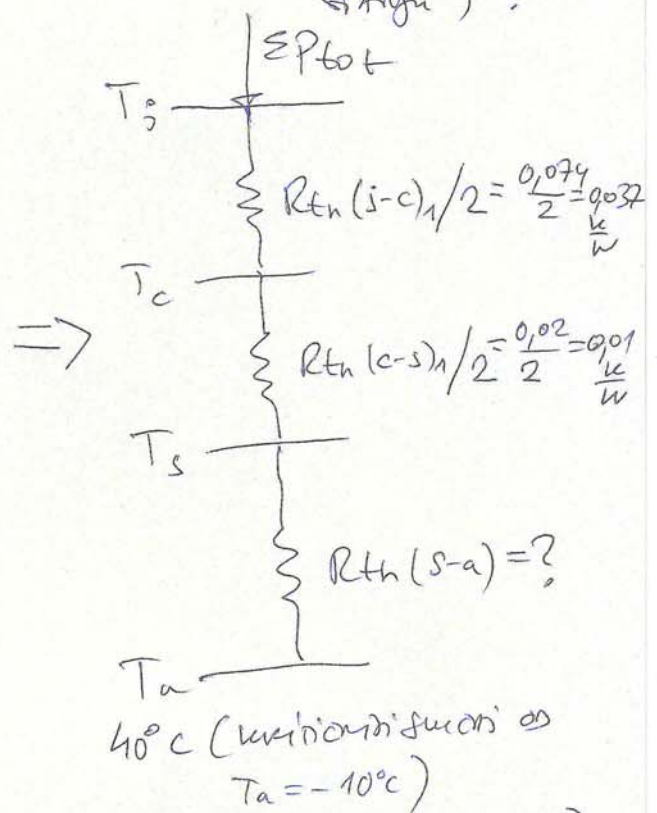 ΣPtot
Tj
Rth (j-c)₁/2 = 0,074/2 = 0,037 K/W
Tc
⇒
Rth (c-s)₁/2 = 0,02/2 = 0,01 K/W
Ts
Rth (s-a) = ?
Ta
40°C (
Ta = -10°C)